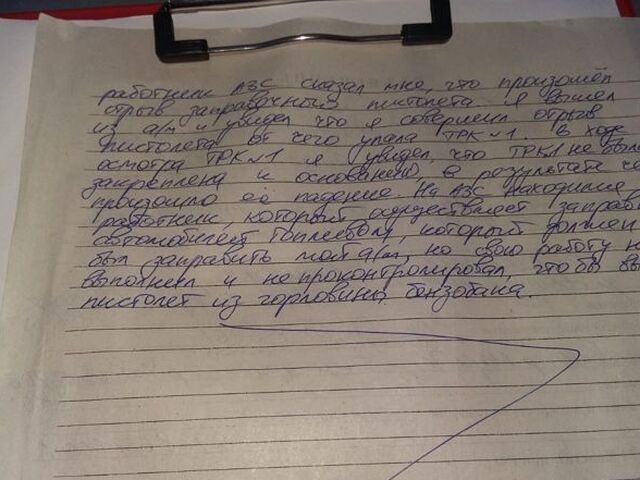 работник АЗС сказал мне, что произошёл
отрыв заправочный пистолета. Я вышел
из а/м и увидел что я совершил отрыв
пистолета от чего упала ТРК №1. В ходе
осмотра ТРК №1 я увидел, что ТРК1 не была
закреплена к основанию, в результате че
произошло её падение. На АЗС находился
работник, который осуществляет заправк
автомобилей топливом, который должен
был заправить мой а/м, но свою работу не
выполнил и не проконтролировал, что бы вы
пистолет из горловины бензобака.